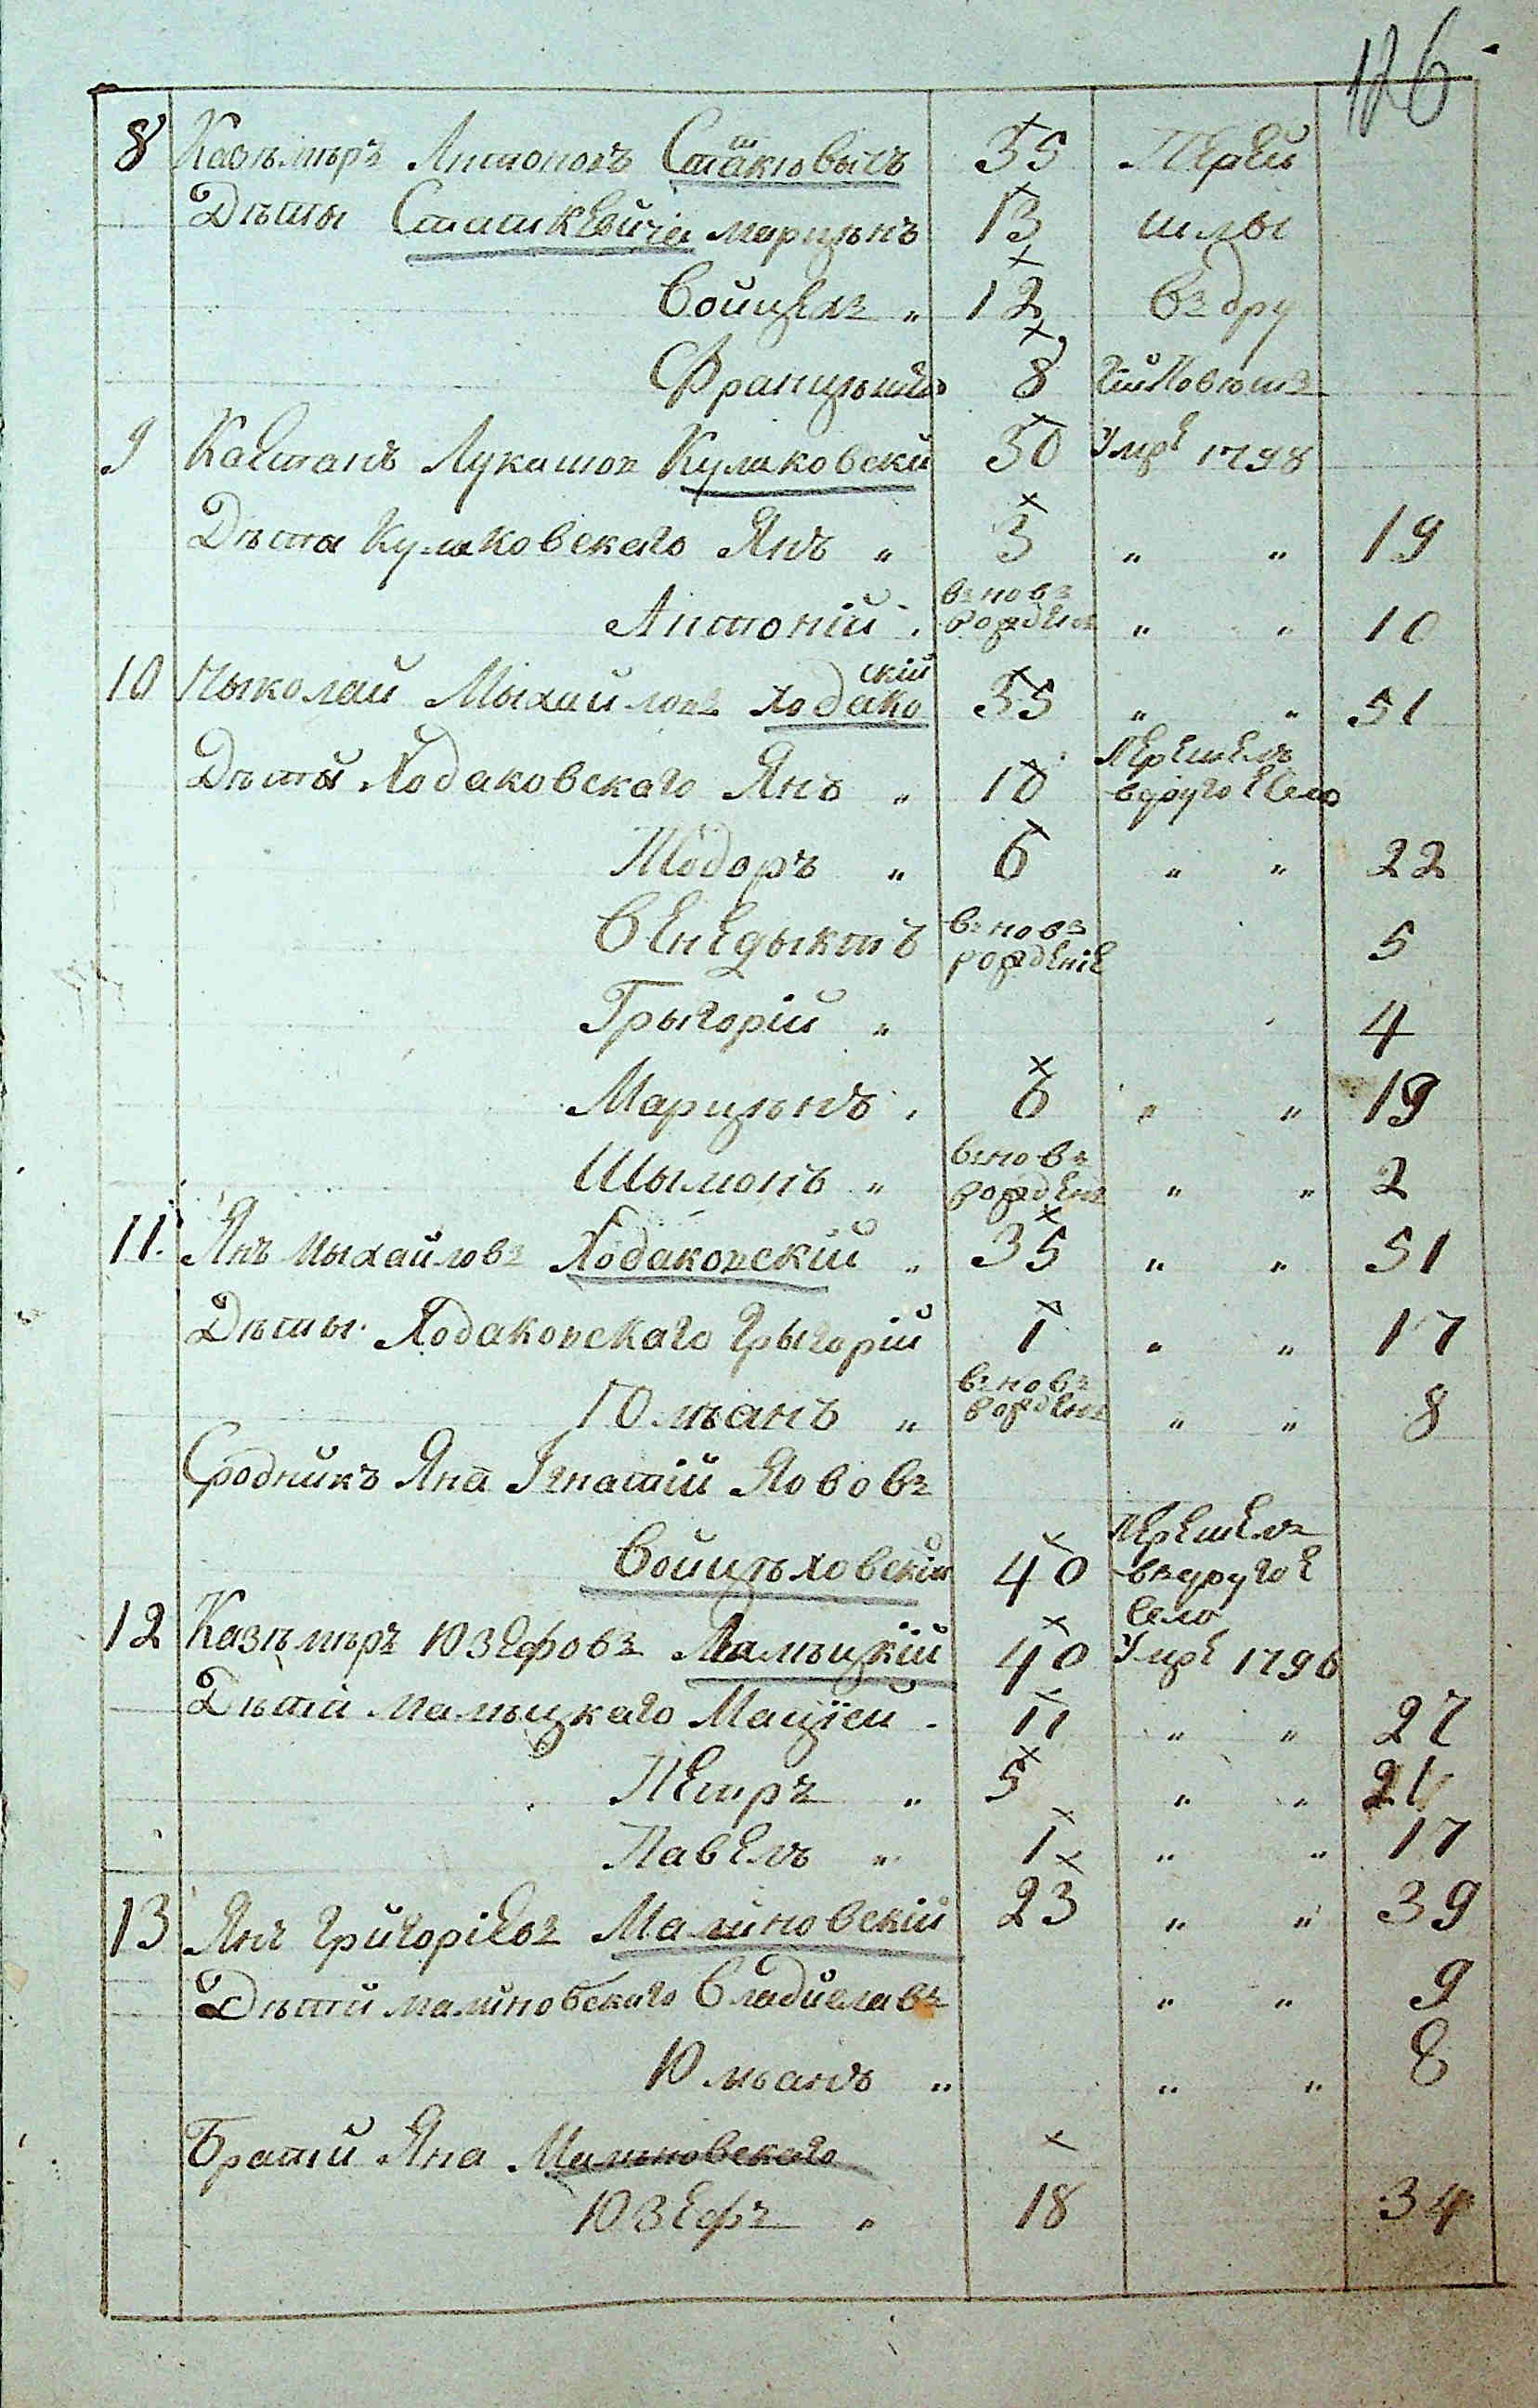 126
8 Казѣмѣръ Антоновъ Сташкювычъ 35 Перей
Дѣты Статкевича Марцѣнъ 13 шлы
Войцехъ „ 12 въ дру
Францѣшекъ 8 гій Повютъ
9 Каетанъ Лукашов Кулаковский 30 Умре 1798
Дѣти Кулаковскаго Янъ „ 3 „ „ 19
Антоній „ вновъ рожденъ „ „ 10
10 Мыколай Мыхайловъ Ходакоский 35 „ „ 51
Дѣты Ходаковскаго Янъ „ 10 Перешелъ вдругое Село
Тѣодоръ „ 6 „ „ 22
Венедыктъ вновъ рожденіе 5
Грыгорій „ 4
Марцѣнъ „ 6 „ „ 19
Шымонъ „ вновъ рожденъ „ „ 2
11. Янъ Мыхайловъ Ходаковскій „ 35 „ „ 51
Дѣты Ходаковскаго Грыгорій 1 „ „ 17
Юльянъ „ вновъ рожденъ „ „ 8
Сродникъ Яна Игнатій Яововъ
Войцѣховскій 40 Перешелъ въдругое Село
12 Казѣмѣръ Юзефовъ Малѣцкій 40 Умре 1796
Дѣти Малѣцкаго Мацѣй „ 11 „ „ 27
Петръ „ 5 „ „ 21
Павелъ „ 1 „ „ 17
13 Янъ Григоріевъ Малиновскій 23 „ „ 39
Дѣти Малиновскаго Владиславъ „ „ 9
Юльянъ „ „ „ 8
Братъи Яна Малыновскаго
Юзефъ „ 18 34